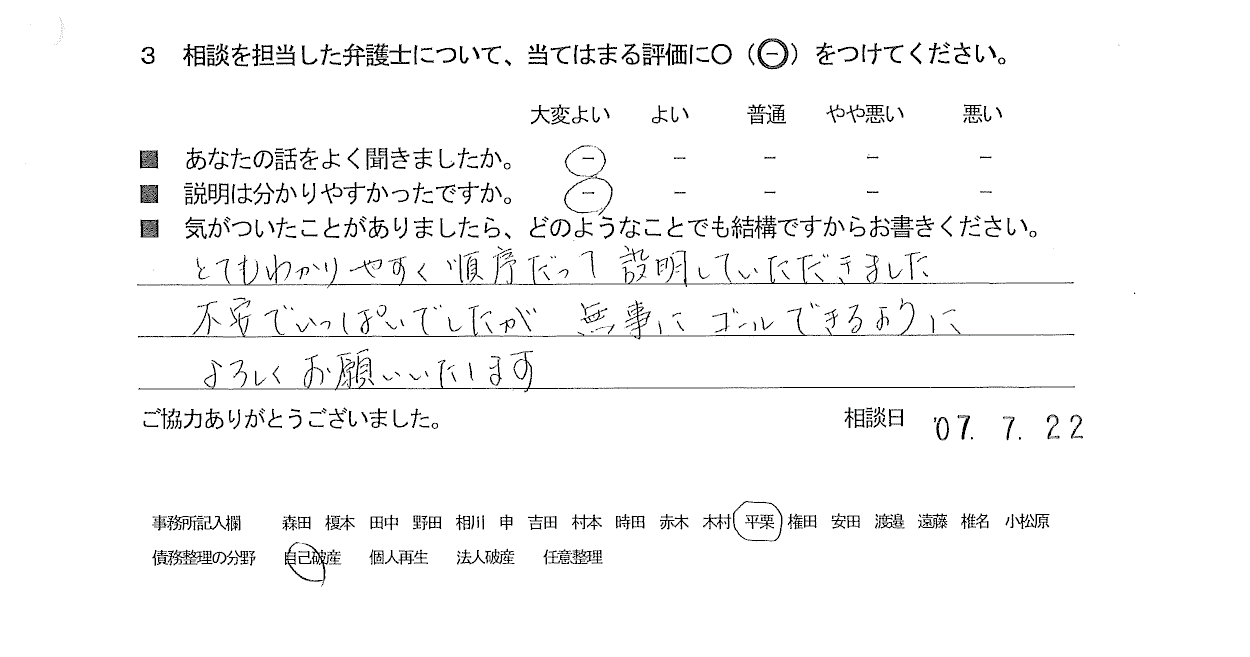 3 相談を担当した弁護士について、当てはまる評価に○（㊀）をつけてください。
大変よい よい 普通 やや悪い 悪い
■ あなたの話をよく聞きましたか。 − − − − −
■ 説明は分かりやすかったですか。 − − − − −
■ 気がついたことがありましたら、どのようなことでも結構ですからお書きください。
とてもわかりやすく順序だって説明していただきました
不安でいっぱいでしたが 無事にゴールできるように
よろしくお願いいたします
ご協力ありがとうございました。 相談日 '07. 7. 22
事務所記入欄 森田 榎本 田中 野田 相川 申 吉田 村本 時田 赤木 木村 平栗 権田 安田 渡邉 遠藤 椎名 小松原
債務整理の分野 自己破産 個人再生 法人破産 任意整理